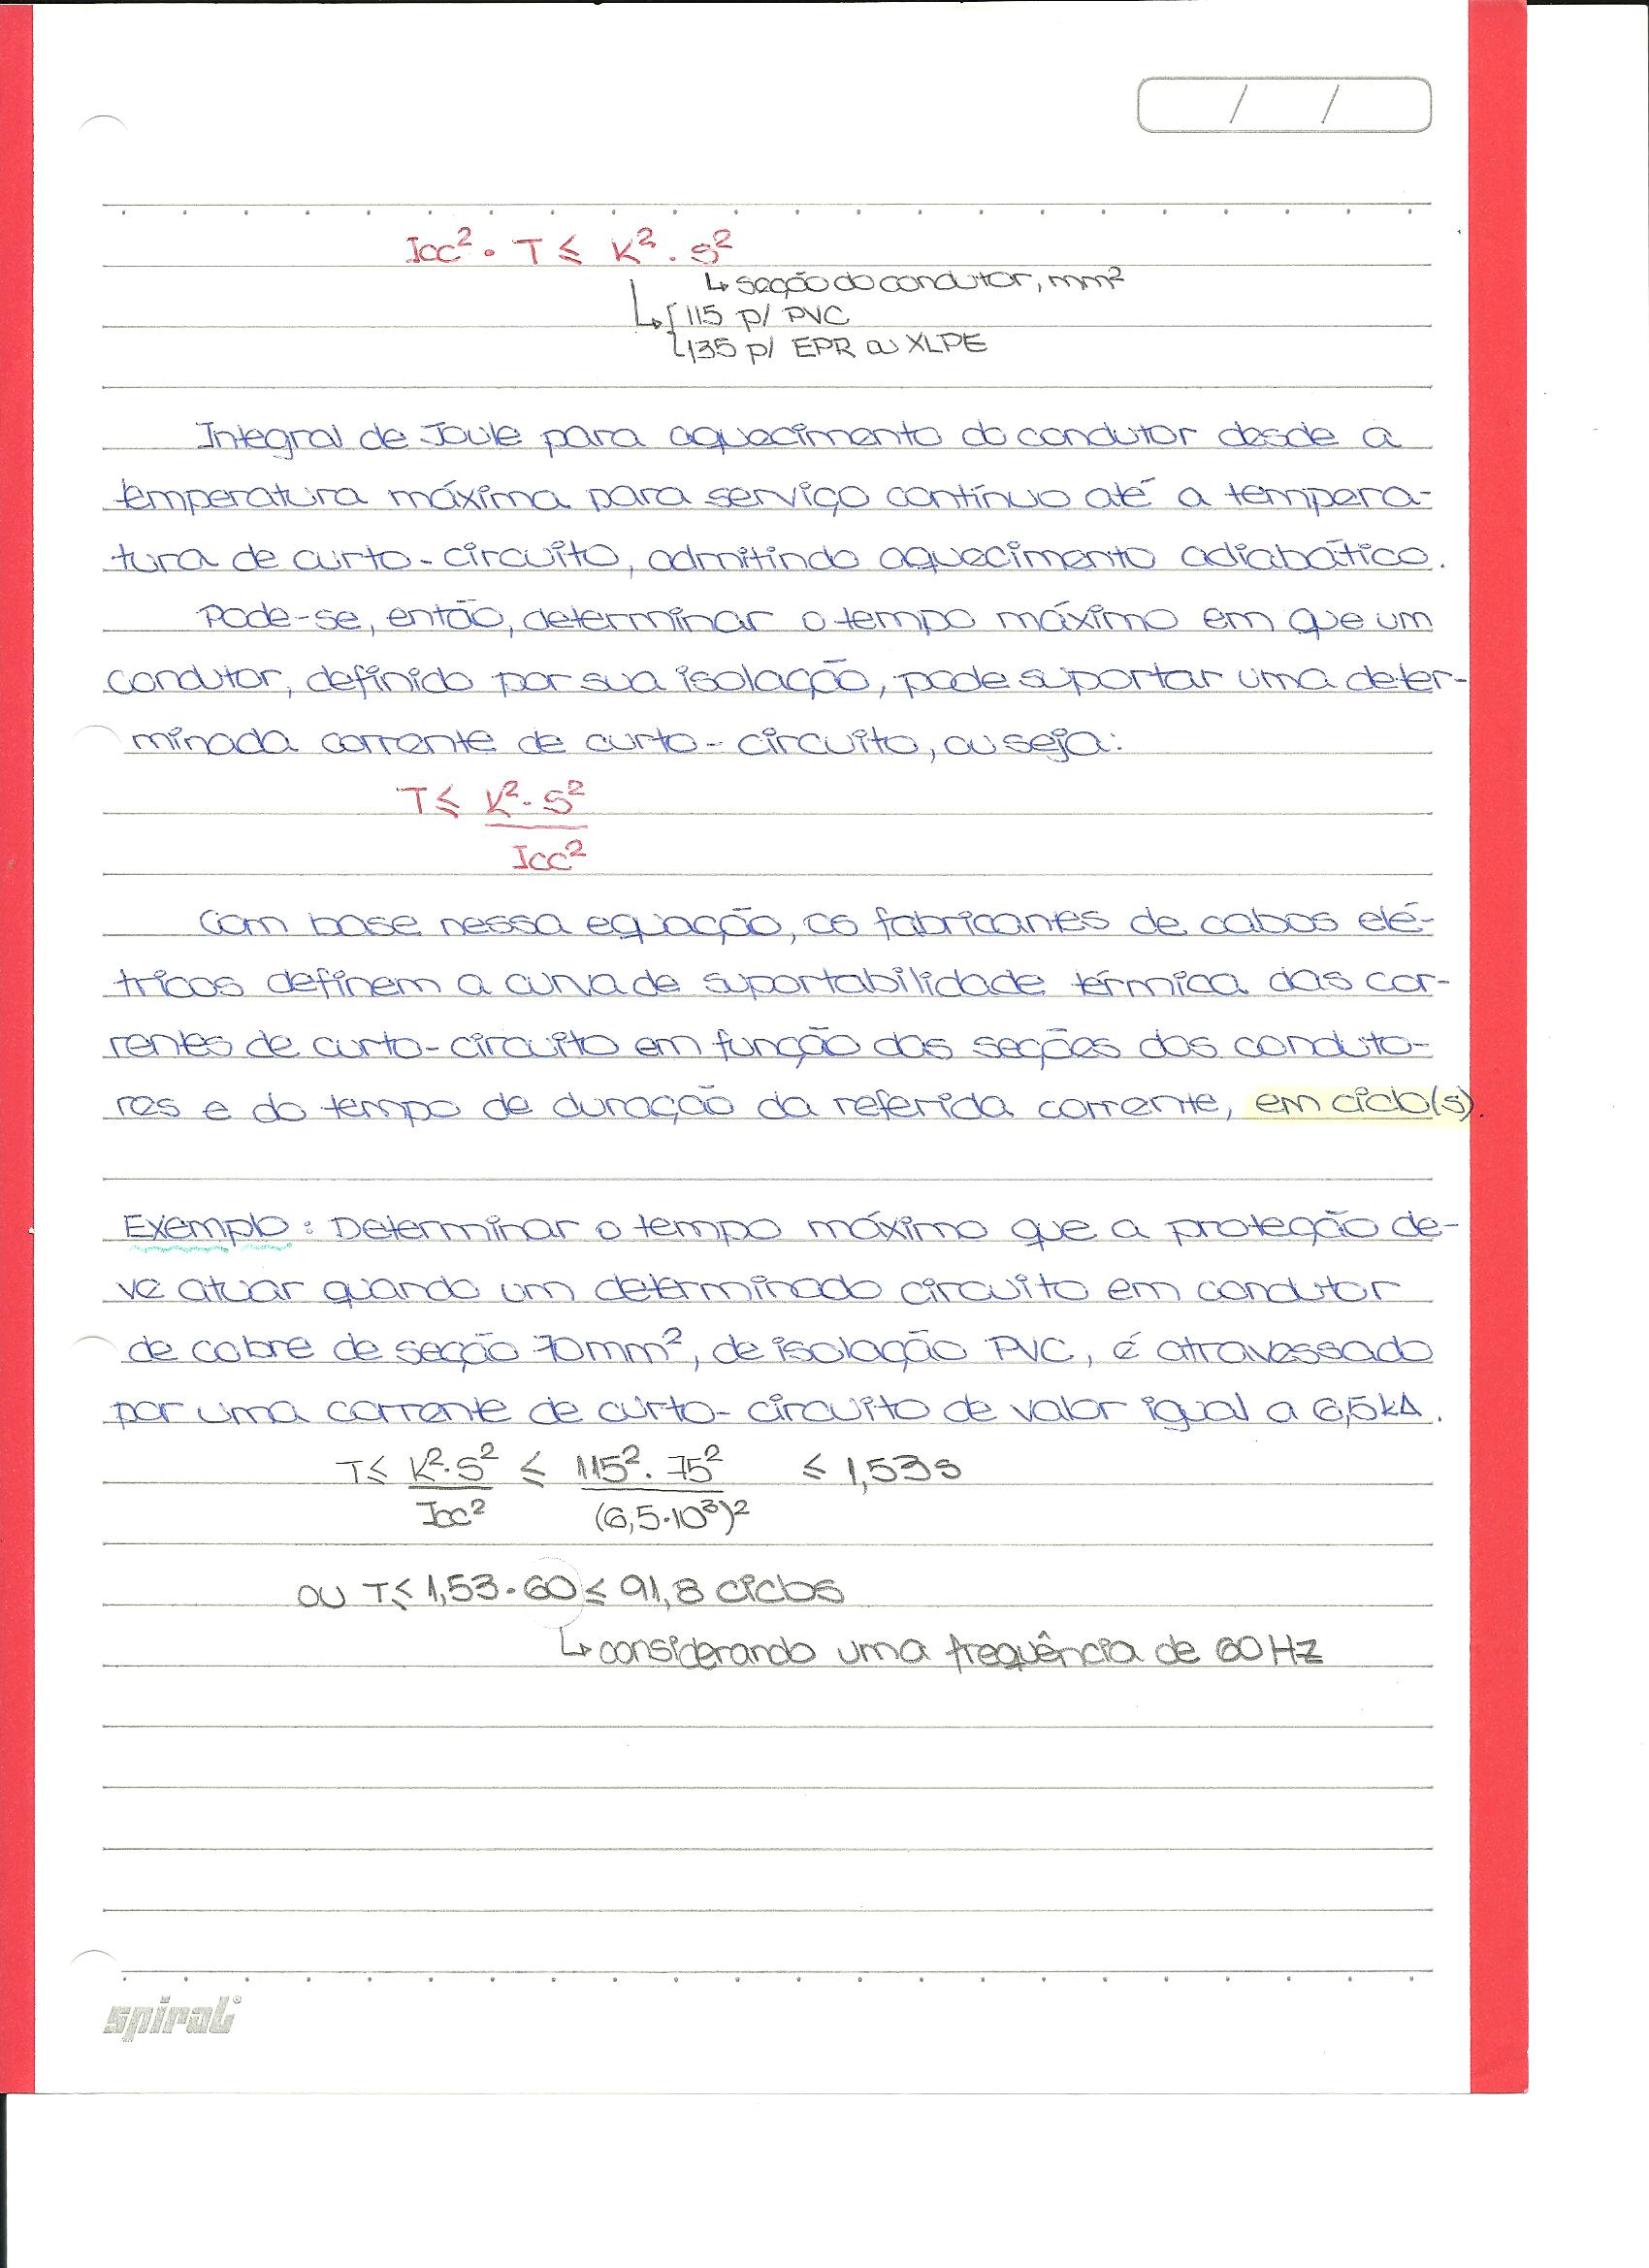 / /
Icc² . T ≤ K² . S²
↳ seção do condutor, mm²
↳ { 115 p/ PVC
135 p/ EPR ou XLPE
Integral de Joule para aquecimento do condutor desde a
temperatura máxima para serviço contínuo até a tempera-
tura de curto-circuito, admitindo aquecimento adiabático.
Pode-se, então, determinar o tempo máximo em que um
condutor, definido por sua isolação, pode suportar uma deter-
minada corrente de curto-circuito, ou seja:
T ≤ K² . S²
Icc²
Com base nessa equação, os fabricanes de cabos elé-
tricos definem a curva de suportabilidade térmica das cor-
rentes de curto-circuito em função das seções dos conduto-
res e do tempo de duração da referida corrente, em ciclo(s).
Exemplo: Determinar o tempo máximo que a proteção de-
ve atuar quando um determinado circuito em condutor
de cobre de seção 70mm², de isolação PVC, é atravessado
por uma corrente de curto-circuito de valor igual a 6,5kA.
T ≤ K² . S² ≤ 115² . 75² ≤ 1,53s
Icc² (6,5.10³)²
ou T ≤ 1,53.60 ≤ 91,8 ciclos
↳ considerando uma frequência de 60Hz
spiral®